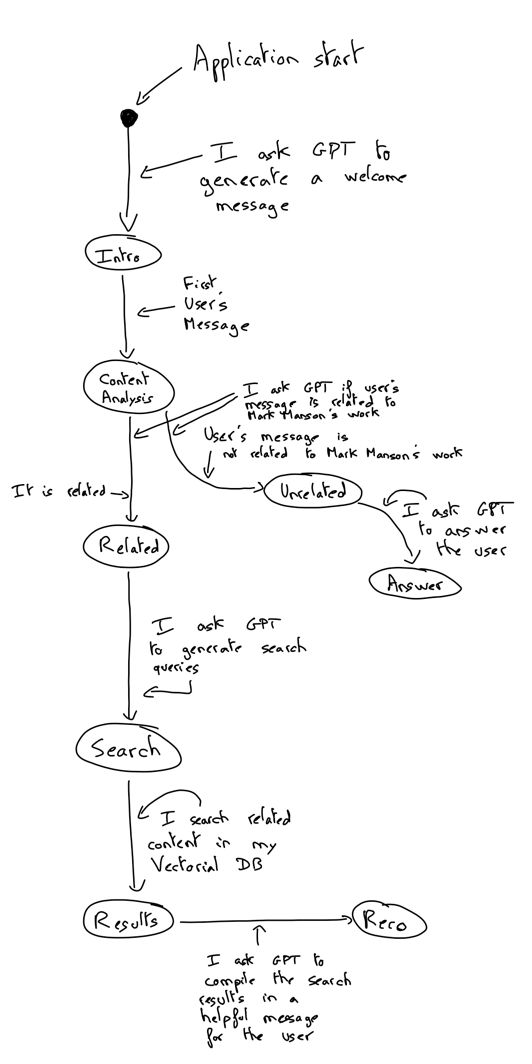 Application start
I ask GPT to
generate a welcome
message
Intro
First
User's
Message
Content
Analysis
I ask GPT if user's
message is related to
Mark Manson's work
User's message is
not related to Mark Manson's work
It is related
Unrelated
I ask GPT
to answer
the user
Related
Answer
I ask GPT
to generate search
queries
Search
I search related
content in my
Vectorial DB
Results
Reco
I ask GPT to
compile the search
results in a
helpful message
for the user